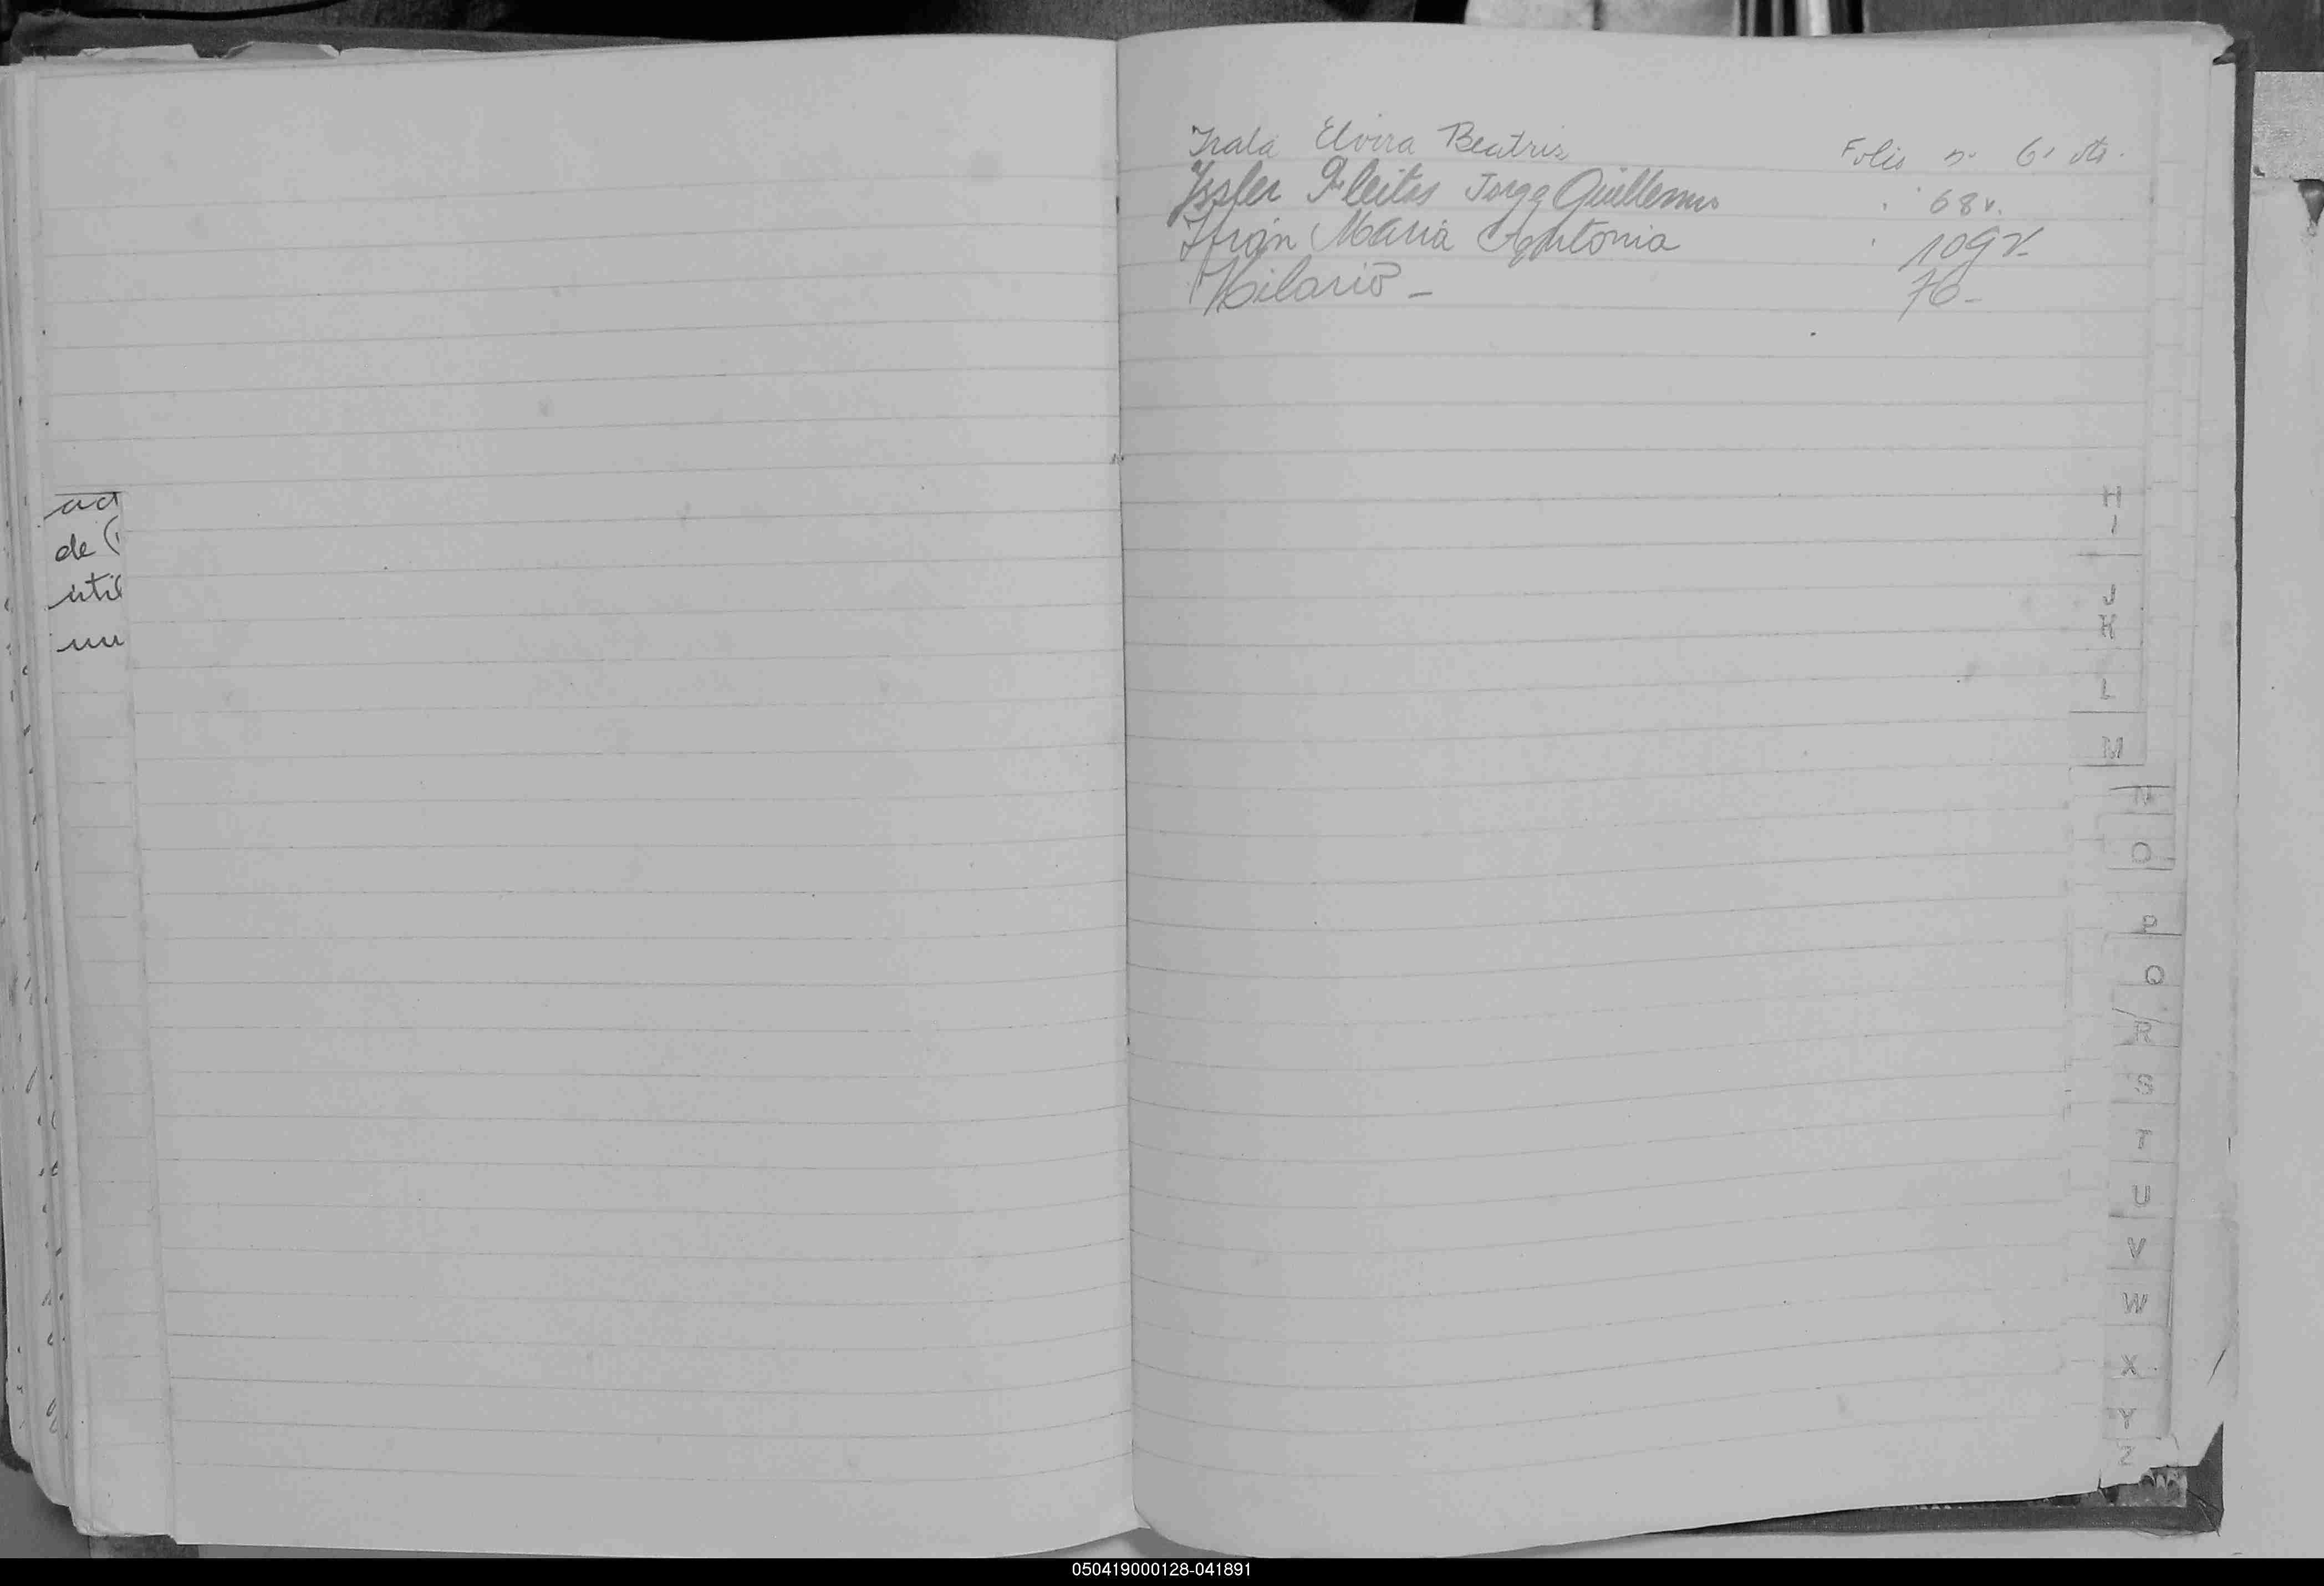 ad
de (
util
un
Irala Elvira Beatriz Folio n. 61 vto.
Fleitas Jorge Guillermo " 68 v.
María Antonia " 109 v
Hilario - 76 -
H
I
J
K
L
M
N
O
P
Q
R
S
T
U
V
W
X
Y
Z
050419000128-041891